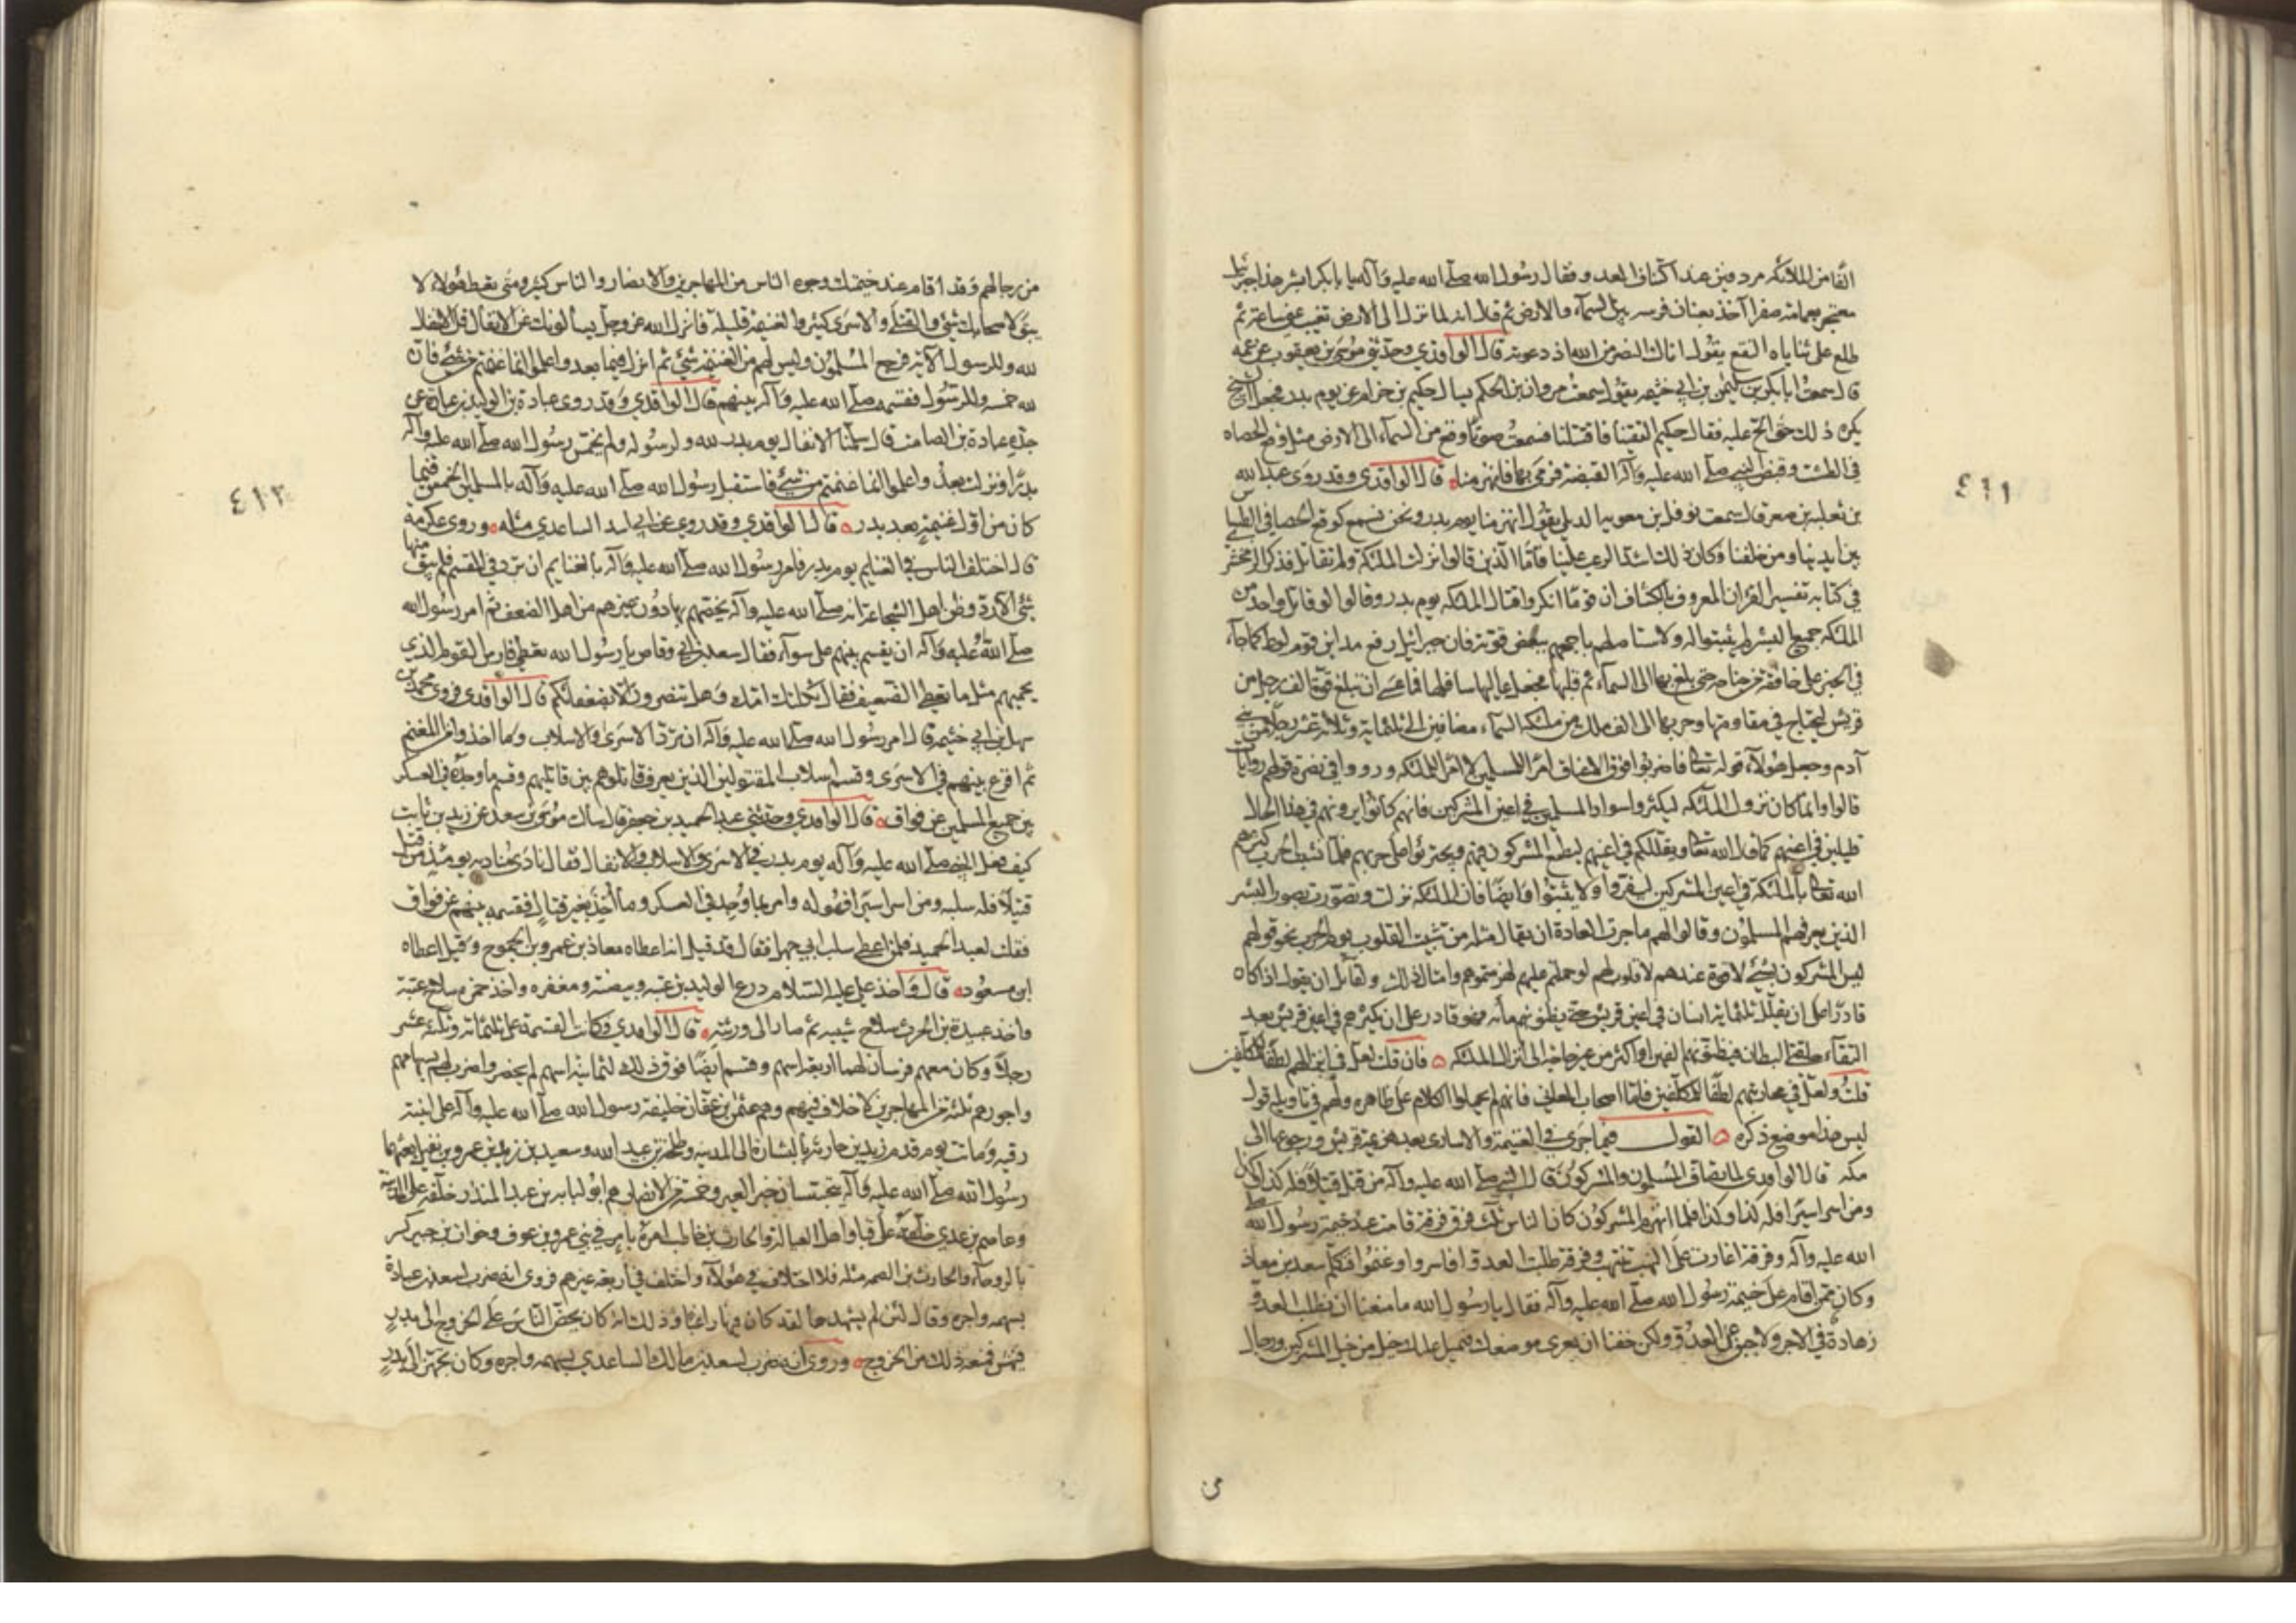 ٤١١
الفا من الملائكة مردفين عند اكتاف العدو فقال رسول الله صلى الله عليه وآله يا بابكر ابشر هذا جبرئيل
معتجر بعمامة صفرا آخذ بعنان فرسه بين السماء والارض ثم قال انه لما نزل الى الارض تغيب عني ساعة ثم
طلع على ثناياه النقع يقول اتاك النصر من الله اذ دعوته قال الواقدي وحدثني موسى بن يعقوب عن عمه
قال سمعت ابا بكر بن سليمن بن ابي خثيمه يقول سمعت مروان بن الحكم يسال حكيم بن حزام عن يوم بدر فجعل الشيخ
يكره ذلك حتى الح عليه فقال حكيم التقينا فاقتتلنا فسمعت صوتا وقع من السماء الى الارض مثل وقع الحصاه
في الطست وقبض النبي صلى الله عليه وآله القبضة فرمى بها فانهزمنا قال الواقدي وقد روى عبد الله
بن ثعلبه بن صعر قال سمعت نوفل بن معويه الديلي يقول انهزمنا يوم بدر ونحن نسمع كوقع الحصا في الطساس
بين ايدينا ومن خلفنا وكان ذلك اشد الرعب علينا فاما الذين قالوا نزلت الملئكة ولم تقاتل فذكر الزمخشري
في كتابه تفسير القرآن المعروف بالكشاف ان قوما انكروا قتال الملئكه يوم بدر وقالوا لو قاتل واحد من
الملئكه جميع البشر لم يثبتوا له ولاستاصلهم باجمعهم ببعض قوته فان جبرائيل رفع مداين قوم لوط كما جاء
في الخبر على خافقة من جناحه حتى بلغ بها الى السماء ثم قلبها فجعل عاليها سافلها فما عسى ان يبلغ قوة الف رجل من
قريش ليحتاج في مقاومتها وحربها الى الف ملك من ملئكه السماء مضافين الى ثلثمائة وثلاثة عشر رجلا من بني
آدم وجعل هؤلاء قوله تعالى فاضربوا فوق الاعناق امرا للمسلمين لا امرا للملئكه ورووا في نصرة قولهم روايات
قالوا وانما كان نزول الملئكه ليكثروا سواد المسلمين في اعين المشركين فانهم كانوا يرونهم في هذا الحال
قليلين في اعينهم كما قال الله تعالى ويقللكم في اعينهم ليطمع المشركون فيهم ويجتروا على حربهم فلما نشبت الحرب كثرهم
الله تعالى بالملئكة في اعين المشركين ليفروا ولا يثبتوا وايضا فان الملئكه نزلت وتصورت بصور البشر
الذين يعرفهم المسلمون وقالوا لهم ما جرت العادة ان يقال مثله من تثبيت القلوب يوم الحرب نحو قولهم
ليس المشركون بشئ لا قوة عندهم لا قلوب لهم لو حملتم عليهم لهزمتموهم وامثال ذلك ولقائل ان يقول اذا كان
قادرا على ان يقلل ثلثمائة انسان في اعين قريش حتى يظنوهم مأئه فهو قادر على ان يكثرهم في اعين قريش بعد
التقاء حلقتي البطان فيظنونهم الفين او اكثر من غير حاجة الى انزال الملئكه فان قلت لعل في انزالهم لطفا للمكلفين
قلت ولعل في محاربتهم لطفا للمكلفين فاما اصحاب المعاني فانهم لم يحملوا الكلام على ظاهره ولهم في تاويله قول
ليس هذا موضع ذكره القول فيما جرى في الغنيمة والاسارى بعد هزيمة قريش ورجوعها الى
مكه قال الواقدي لما تصاف المسلمون والمشركون قال النبي صلى الله عليه وآله من قتل قتيلا فله كذا وكذا
ومن اسر اسيرا فله كذا وكذا فلما انهزم المشركون كان الناس ثلث فرق فرقة قامت عند خيمة رسول الله صلى
الله عليه وآله وفرقة اغارت على النهب تنتهب وفرقة طلبت العدو فاسروا وغنموا فتكلم سعد بن معاذ
وكان ممن اقام على خيمة رسول الله صلى الله عليه وآله فقال يا رسول الله ما منعنا ان نطلب العدو
زهادة في الاجر ولا جبن عن العدو ولكن خفنا ان يعرى موضعك فتميل عليك خيل من خيل المشركين ورجال
من
٤١٢
من رجالهم وقد اقام عند خيمتك وجوه الناس من المهاجرين والانصار والناس كثير ومتى تعط هؤلاء لا
يبقى لاصحابك شئ والقتلى والاسرى كثير والغنيمة قليلة فانزل الله عز وجل يسألونك عن الانفال قل الانفال
لله وللرسول الآية فرجع المسلمون وليس لهم من الغنيمة شئ ثم انزل فيما بعد واعلموا انما غنمتم من شئ فان
لله خمسه وللرسول فقسمه صلى الله عليه وآله بينهم قال الواقدي وقد روى عبادة بن الوليد بن عبادة عن
جده عبادة بن الصامت قال سلمنا الانفال يوم بدر لله ولرسوله ولم يخمس رسول الله صلى الله عليه وآله
بدرا ونزلت بعد واعلموا انما غنمتم من شئ فاستقبل رسول الله صلى الله عليه وآله بالمسلمين الخمس فيما
كان من اول غنيمة بعد بدر قال الواقدي وقد روى عن ابي اسيد الساعدي مثله وروى عكرمة
قال اختلف الناس في الغنايم يوم بدر فامر رسول الله صلى الله عليه وآله بالغنايم ان ترد في المقسم فلم يبق منها
شئ الا رد وظن اهل الشجاعة انه صلى الله عليه وآله يخصهم بها دون غيرهم من اهل الضعف ثم امر رسول الله
صلى الله عليه وآله ان يقسم بينهم على سوآء فقال سعد بن ابي وقاص يا رسول الله تعطي فارس القوم الذي
يحميهم مثل ما تعطي الضعيف فقال ثكلتك امك وهل تنصرون الا بضعفائكم قال الواقدي فروى محمد بن
سهل بن ابي خثيمه قال امر رسول الله صلى الله عليه وآله ان ترد الاسرى والاسلاب وما اخذوا من المغنم
ثم اقرع بينهم في الاسرى وقسم اسلاب المقتولين الذين يعرف قاتلوهم بين قاتليهم وقسم ما وجد في العسكر
بين جميع المسلمين عن فواق قال الواقدي وحدثني عبد الحميد بن جعفر قال سالت موسى بن سعد عن زيد بن ثابت
كيف فعل النبي صلى الله عليه وآله يوم بدر في الاسرى والاسلاب والانفال فقال نادى مناديه يومئذ من قتل
قتيلا فله سلبه ومن اسر اسيرا فهو له وامر بما وجد في العسكر وما اخذ بغير قتال فقسمه بينهم عن فواق
فقلت لعبد الحميد فلمن اعطى سلب ابي جهل فقال قد قيل انه اعطاه معاذ بن عمرو بن الجموح وقيل اعطاه
ابن مسعود قال واخذ علي عليه السلام درع الوليد بن عتبه وبيضته ومغفره واخذ حمزه سلاح عتبة
واخذ عبيدة بن الحرث سلاح شيبه ثم صار الى ورثته قال الواقدي وكانت القسمة على ثلثمائة وثلثة عشر
رجلا وكان معهم فرسان لهما اربعة اسهم وقسم ايضا فوق ذلك لثمانية اسهم لم يحضروا ضرب لهم بسهامهم
واجورهم ثلثة من المهاجرين لا خلاف فيهم وهم عثمن بن عفان خليفة رسول الله صلى الله عليه وآله على ابنته
رقيه وماتت يوم قدم زيد بن حارثه بالبشارة الى المدينه وطلحة بن عبيد الله وسعيد بن زيد بن عمرو بن نفيل بعثهما
رسول الله صلى الله عليه وآله يتجسسان خبر العير وخمسة من الانصار هم ابو لبابه بن عبد المنذر خلفه على المدينة
وعاصم بن عدي خلفه على قبا واهل العاليه والحارث بن حاطب امره بامر في بني عمرو بن عوف وخوات بن جبير كسر
بالروحآء والحارث بن الصمه مثله فلا اختلاف في هؤلآء واختلف في اربعة غيرهم فروى انه ضرب لسعد بن عبادة
بسهمه واجره وقال لئن لم يشهدها لقد كان فيها راغبا وذلك انه كان يحض الناس على الخروج الى بدر
فنهش فمنعه ذلك من الخروج وروى انه ضرب لسعد بن مالك الساعدي بسهمه واجره وكان تجهز الى بدر